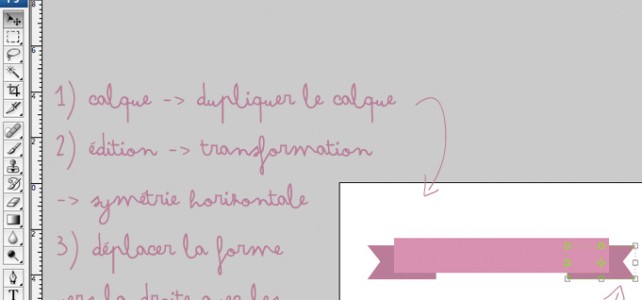 1) calque -> dupliquer le calque
2) édition -> transformation
-> symétrie horizontale
3) déplacer la forme
vers la droite avec les